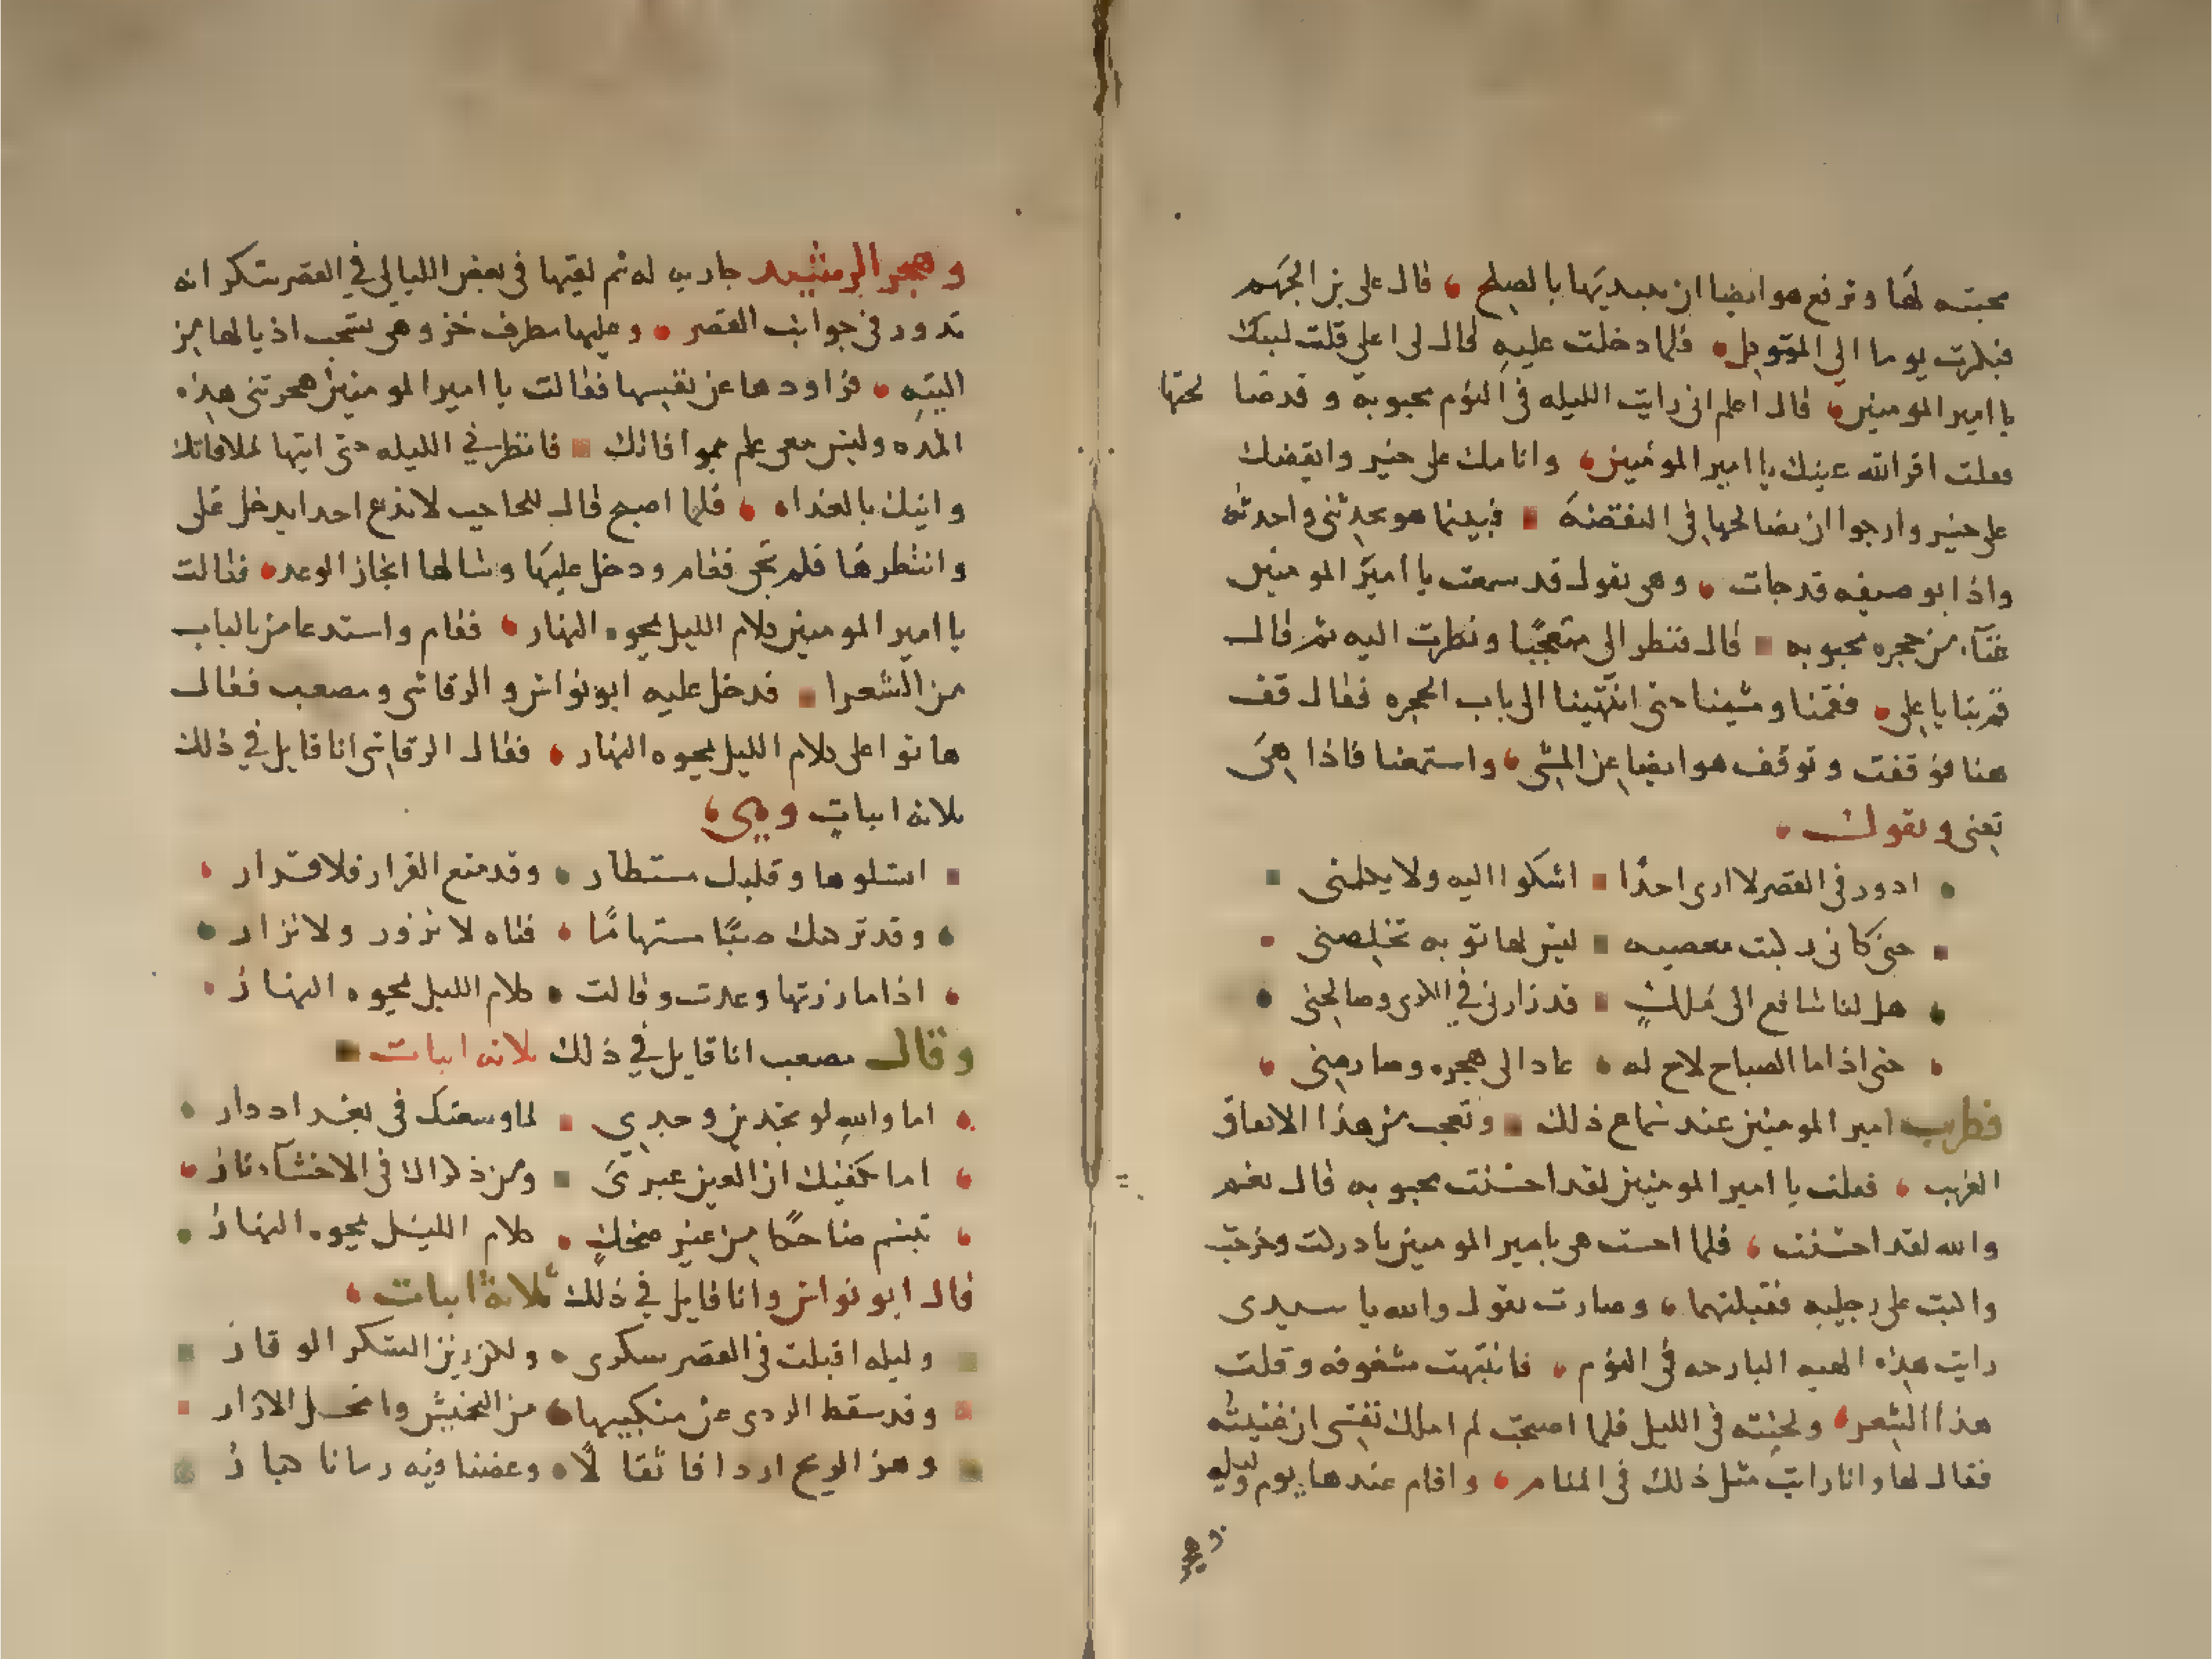 محبته لها وترفع هو ايضا ان يبديها بالصلح قال على بن الجهم
فبكرت يوما الى المتوكل فلما دخلت عليه قال لى ا على قلت لبيك
يا امير المومنين قال اعلم انى رايت الليله فى النوم محبوبة وقد صا لحتها
فقلت اقر الله عينك يا امير المومنين وانامك على خير وايقضك
على خير وارجوا ان يصالحها فى اليقضه فبينما هو يحدثنى واحدثه
واذا بوصيفه قد جات وهى تقول قد سمعت يا امير المومنين
غنآء من حجره محبوبه قال فنظر الى متعجبًا ونظرت اليه ثم قال
قم بنا يا على فقمنا ومشينا حتى انتهينا الى باب الحجره فقال قف
هنا فوقفت وتوقف هو ايضا عن المشى واستمعنا فاذا هى
تغنى وتقول
ادور فى القصر لا ارى احدًا اشكوا اليه ولا يكلمنى
حتى كانى ركبت معصيه ليس لها توبه تخلصنى
هل لنا شافع الى ملك قد زارنى فى الكرى وصالحنى
حتى اذا ما الصباح لاح له عاد الى هجره وصارمنى
فطرب امير المومنين عند سماع ذلك وتعجب من هذا الاتفاق
الغريب فقلت يا امير المومنين لقد احسنت محبوبه قال نعم
والله لقد احسنت فلما احست هى بامير المومنين بادرت وخرجت
واكبت على رجليه فقبلتهما وصارت تقول والله يا سيدى
رايت هذه البارحه فى النوم فانتبهت مشغوفه وقلت
هذا الشعر ولحنته فى الليل فلما اصبحت لم املك نفسى ان غنيته
فقال لها وانا رايت مثل ذلك فى المنام واقام عندها يوم وليله
وهجر
وهجر الرشيد جاريه له ثم لقيها فى بعض الليالى فى القصر سكرانه
تدور فى جوانب القصر وعليها مطرف خز وهى تسحب اذيالها من
التيه فراودها عن نفسها فقالت يا امير المومنين هجرتنى هذه
المده وليس معى علم بموافاتك فانظرنى الليله حتى اتهيا لملاقاتك
واتيك بالغداه فلما اصبح قال للحاجب لا تدع احدا يدخل على
وانتظرها فلم تجى فقام ودخل عليها وسالها انجاز الوعد فقالت
يا امير المومنين كلام الليل يمحوه النهار فقام واستدعا من بالباب
من الشعرا فدخل عليه ابو نواس والرقاشى ومصعب فقال
هاتوا على كلام الليل يمحوه النهار فقال الرقاشى انا قايل فى ذلك
ثلاثه ابيات وهى
اتسلوها وقلبك مستطار وقد منع القرار فلا قرار
وقد تركك صبًا مستهامًا فتاه لا تزور ولا تزار
اذا ما زرتها وعدت وقالت كلام الليل يمحوه النهار
وقال مصعب انا قايل فى ذلك ثلاثه ابيات
اما والله لو تجدين وجدى لما وسعتك فى بغداد دار
اما يكفيك ان العين عبرى ومن ذكراك فى الاحشآء نار
تبسم ضاحكًا من غير ضحك كلام الليل يمحوه النهار
قال ابو نواس وانا قايل فى ذلك ثلاثة ابيات
وليله اقبلت فى القصر سكرى ولكن زين السكر الوقار
وقد سقط الردى عن منكبيها من التخميش وانحل الازار
وهز الريح اردافا ثقالًا وغصنا فيه رمانا صغار